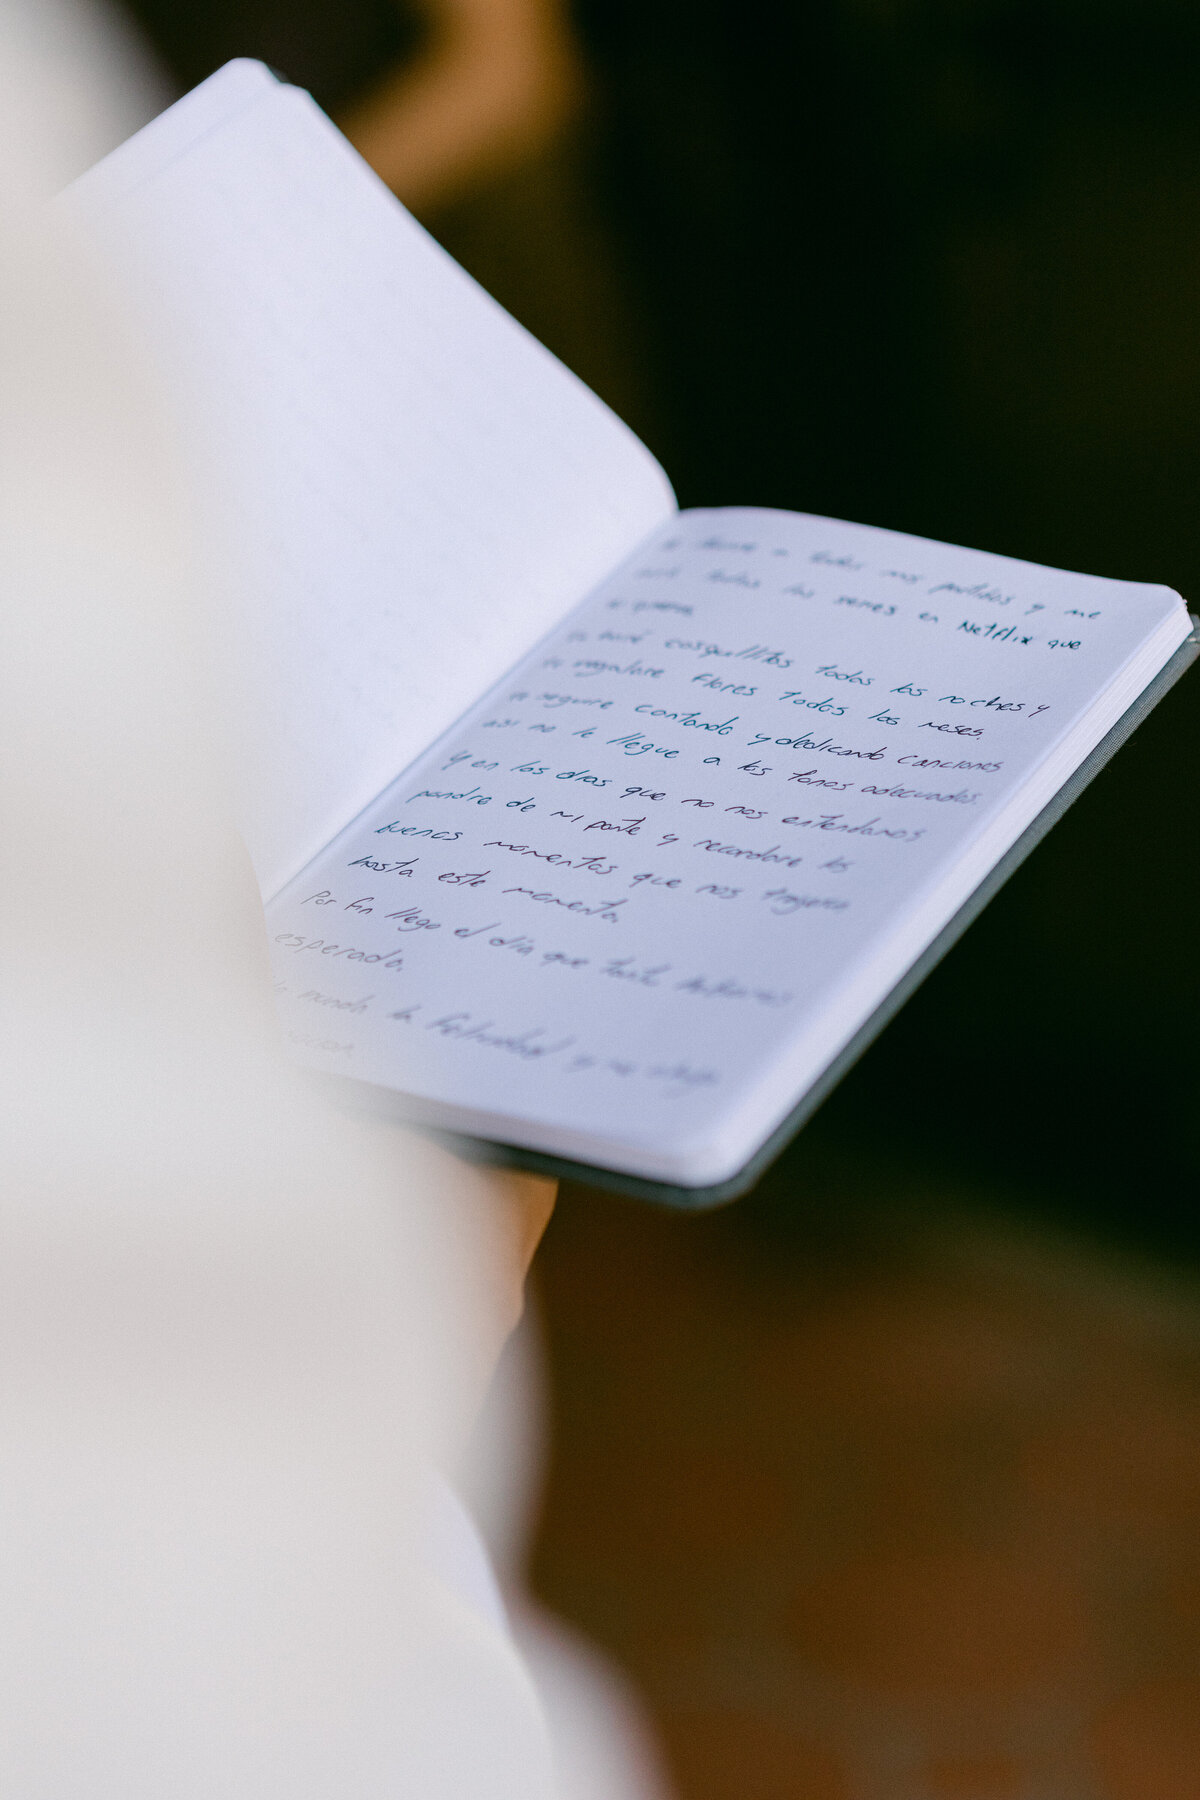 a todos mis partidos y me
todas las series en Netflix que
quieras
te haré cosquillitas todas las noches y
te regalare flores todos los meses.
te seguire cantando y dedicando canciones
asi no le llegue a los tonos adecuados.
Y en los dias que no nos entendamos
pondre de mi parte y recordare los
buenos momentos que nos trajeron
hasta este momento.
Por fin llego el día que tanto
esperado.
mundo la felicidad y me